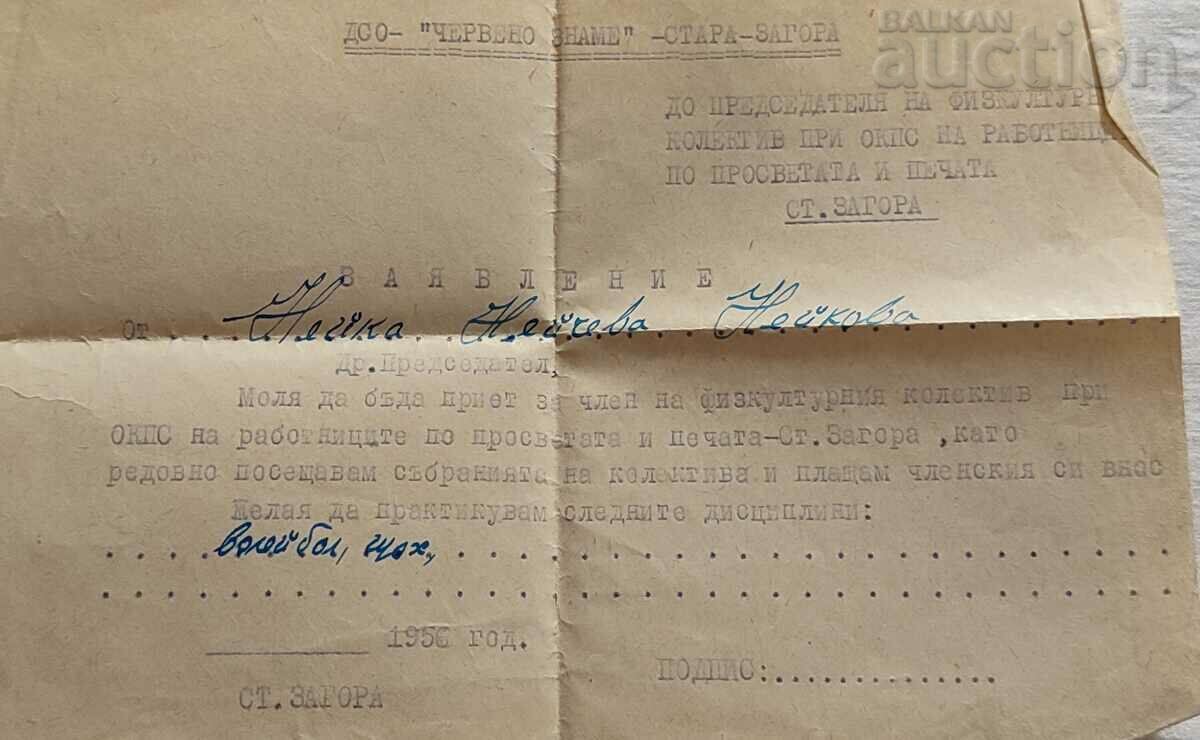 BALKAN
auction
ДСО- "ЧЕРВЕНО ЗНАМЕ" -СТАРА-ЗАГОРА
ДО ПРЕДСЕДАТЕЛЯ НА ФИЗКУЛТУРН
КОЛЕКТИВ ПРИ ОКПС НА РАБОТНИЦИ
ПО ПРОСВЕТАТА И ПЕЧАТА
СТ.ЗАГОРА
З А Я В Л Е Н И Е
От . . . Нейка Нейчева Нейкова . . . . . . . .
Др.Председател,
Моля да бъда приет за член на физкултурния колектив при
ОКПС на работниците по просветата и печата-Ст.Загора ,като
редовно посещавам събранията на колектива и плащам членския си внос
Желая да практикувам следните дисциплини:
. . . . волейбол, шах, . . . . . . . . . . . . . . . . .
. . . . . . . . . . . . . . . . . . . . . . . . . .
________ 1956 год.
ПОДПИС:...............
СТ.ЗАГОРА